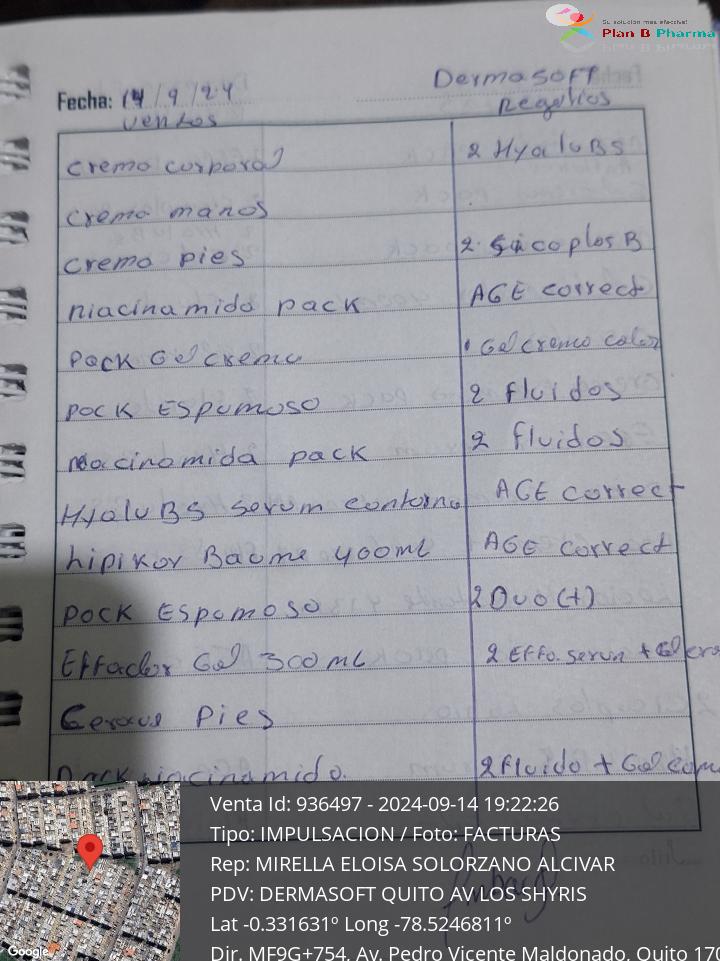 Su solución más efectiva!
Plan B Pharma
Dermasoft
Fecha: 14/9/24
Regalios
ventas
crema corporal 2 Hyalu B5
crema manos
crema pies 2 Cicaplas B
niacinamida pack AGE correct
Pack Gel crema 1 Gel crema color
pack Espumoso 2 fluidos
niacinamida pack 2 fluidos
Hyalu B5 serum contorno AGE correct
Lipikar Baume 400ml AGE correct
pack Espumoso 2 Duo(+)
Effaclar Gel 300 mL 2 Effa. serun + Gel
Cerave Pies
Pack niacinamida. 2 Fluido + Gel
Venta Id: 936497 - 2024-09-14 19:22:26
Tipo: IMPULSACION / Foto: FACTURAS
Rep: MIRELLA ELOISA SOLORZANO ALCIVAR
PDV: DERMASOFT QUITO AV LOS SHYRIS
Lat -0.331631º Long -78.5246811º
Dir. MF9G+754, Av. Pedro Vicente Maldonado, Quito 170
Google